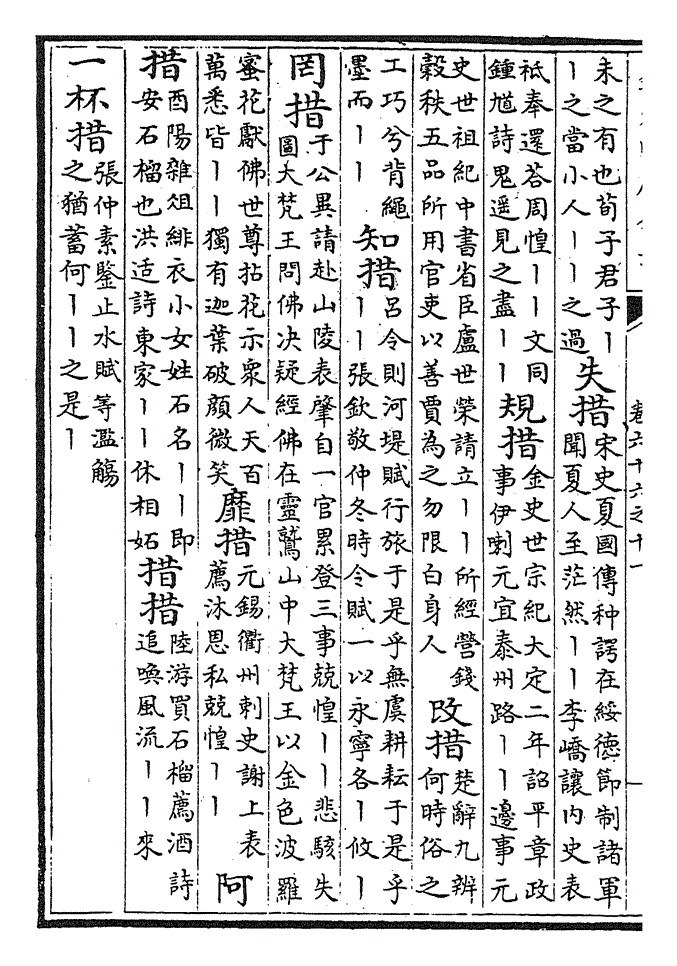 卷六十六之十一
未之有也荀子君子丨
丨之當小人丨丨之過
失措
宋史夏國傳种諤在綏德節制諸軍
聞夏人至茫然丨丨李嶠讓内史表
祗奉還荅周惶丨丨文同
鍾馗詩鬼遥見之盡丨丨
規措
金史世宗紀大定二年詔平章政
事伊喇元宜泰州路丨丨邊事元
史世祖紀中書省臣盧世榮請立丨丨所經營錢
穀秩五品所用官吏以善賈為之勿限白身人
改措
楚辭九辨
何時俗之
工巧兮背繩
墨而丨丨
知措
吕令則河堤賦行旅于是乎無虞耕耘于是乎
丨丨張欽敬仲冬時令賦一以永寧各丨攸丨
罔措
于公異請赴山陵表肇自一官累登三事兢惶丨丨悲駭失
圖大梵王問佛决疑經佛在靈鷲山中大梵王以金色波羅
蜜花獻佛世尊拈花示衆人天百
萬悉皆丨丨獨有迦葉破顔微笑
靡措
元錫衢州刺史謝上表
薦沐恩私兢惶丨丨
阿
措
酉陽雜俎緋衣小女姓石名丨丨即
安石榴也洪适詩東家丨丨休相妬
措措
陸游買石榴薦酒詩
追喚風流丨丨來
一杯措
張仲素鑒止水賦等濫觴
之猶蓄何丨丨之是丨